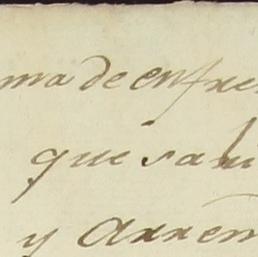 ma de enfre
que sali
y Arren